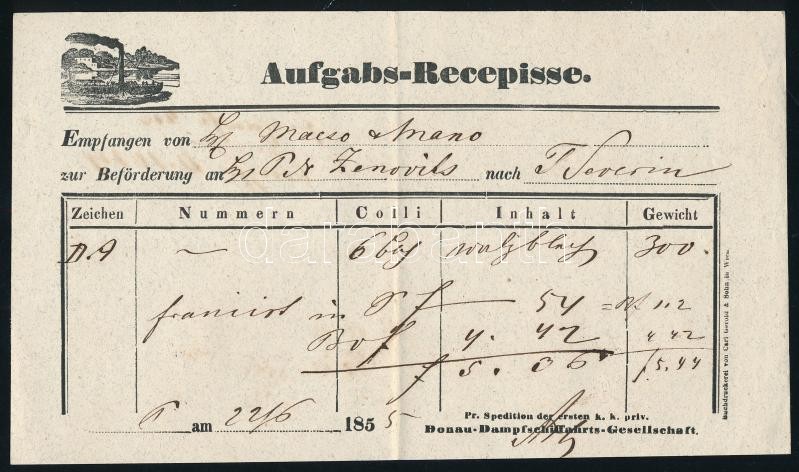 Aufgabs-Recepisse.
Empfangen von Macso & Mano
zur Beförderung an P N Zenovits nach T Severin
Zeichen Nummern Colli Inhalt Gewicht
D.A 6 300.
in 54 1.12
4. 42 4 42
5. 36 5.44
am 22/6 1855
Pr. Spedition der ersten k. k. priv.
Donau-Dampfschiffahrts-Gesellschaft.
Buchdruckerei von Carl Gerold & Sohn in Wien.
darabanth